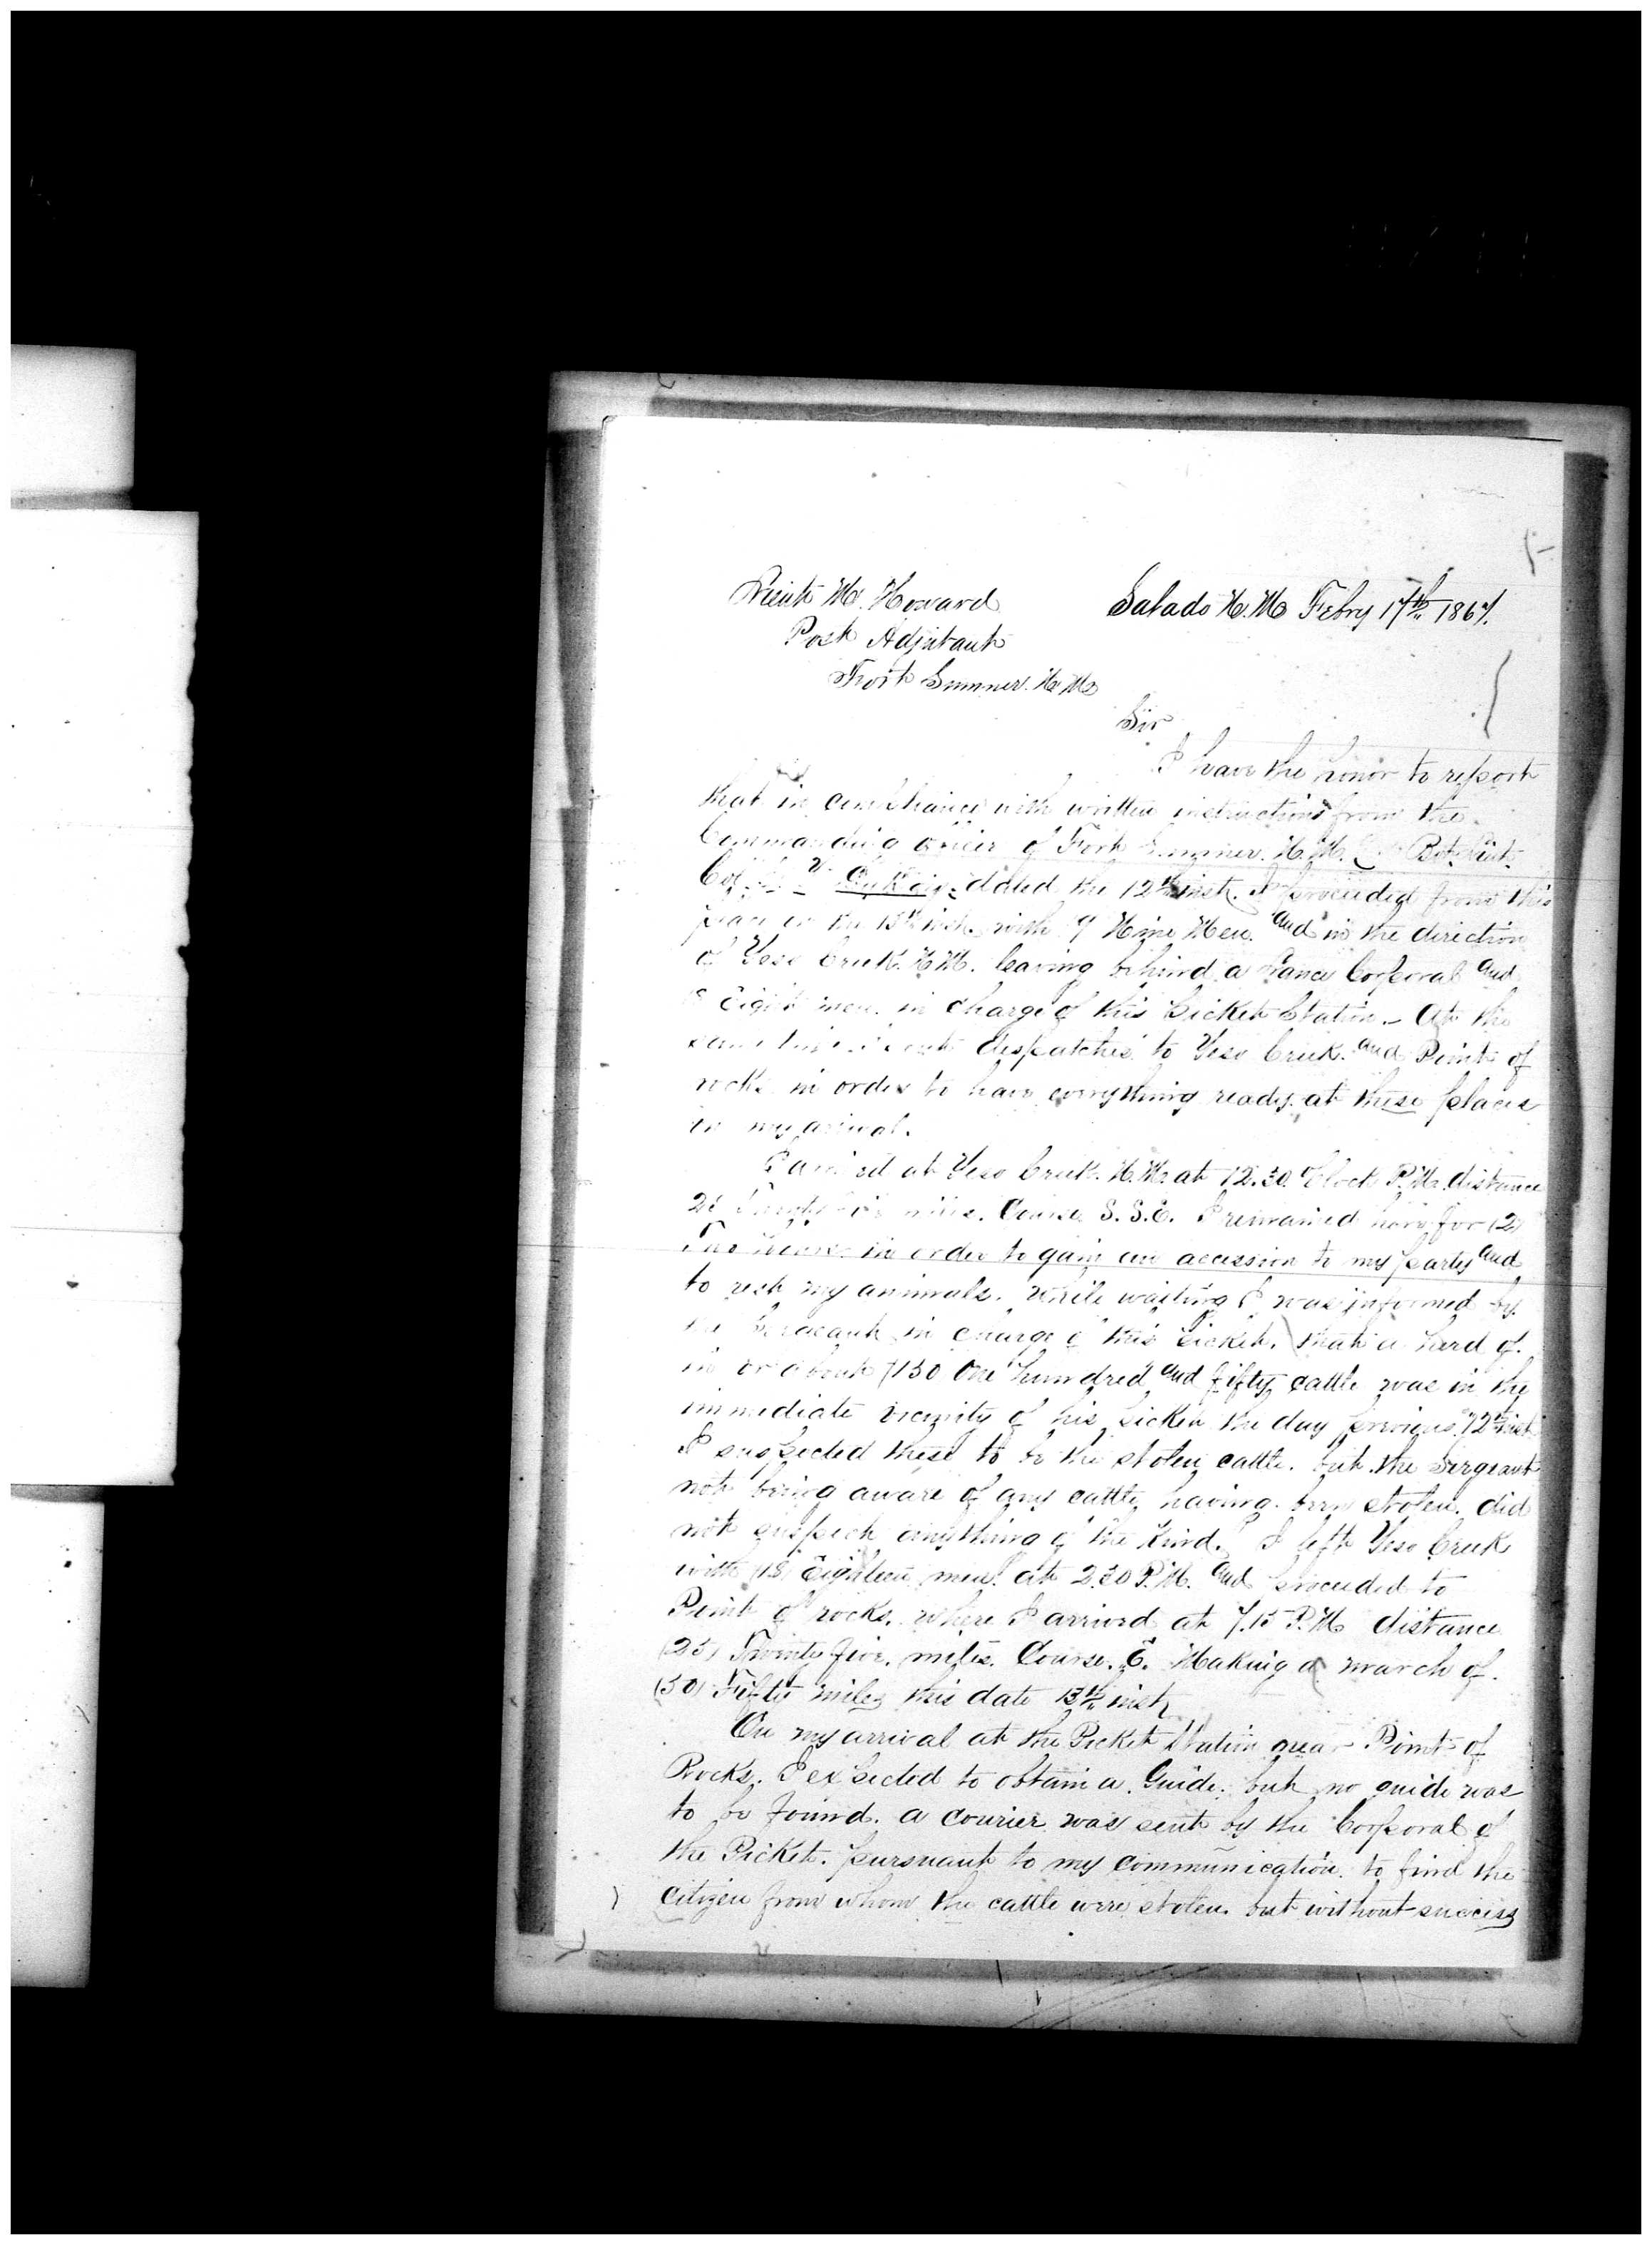 Salado N. M. Febry 17th 1867.
Lieut M. Howard
Post Adjutant
Fort Sumner. N. M.
Sir
I have the honor to report
that in compliance with written instructions from the
Commanding officer of Fort Sumner. N. M. Bvt. Lieut.
Col. dated the 12th inst. I proceeded from this
place on the 13th inst. with 9 Nine Men. and in the direction
of Yeso Creek. N. M. leaving behind a Lance Corporal and
8 Eight men. in charge of this Picket Station. – At the
same time I sent dispatches to Yeso Creek. and Point of
rocks in order to have everything ready. at these places
on my arrival.
I arrived at Yeso Creek. N. M. at 12.30 O'clock P.M. distance
25 Twenty five miles. Course S. S. E. I remained here for (2)
Two hours in order to gain an accession to my party and
to rest my annimals. While waiting I was informed by
the Sergeant in charge of this Picket. that a herd of.
in or about (150 One hundred and fifty cattle was in the
immediate vicinity of his Picket the day previous 12th inst.
I suspected these to be the stolen cattle. but the Sergeant
not being aware of any cattle having been stolen. did
not suspect anything of the kind. I left Yeso Creek
with (18) Eighteen men. at 2.30 P.M. and proceeded to
Point of rocks. where I arrived at 7.15 P.M. distance
(25) Twenty five. miles. Course. E. Making a march of.
(50) Fifty miles this date 13th inst
On my arrival at the Picket Station near Point of
Rocks. I expected to obtain a. Guide. but no guide was
to be found. a courier was sent by the Corporal of
the Picket. pursuant to my communication. to find the
Citizen from whom the cattle were stolen. but without success